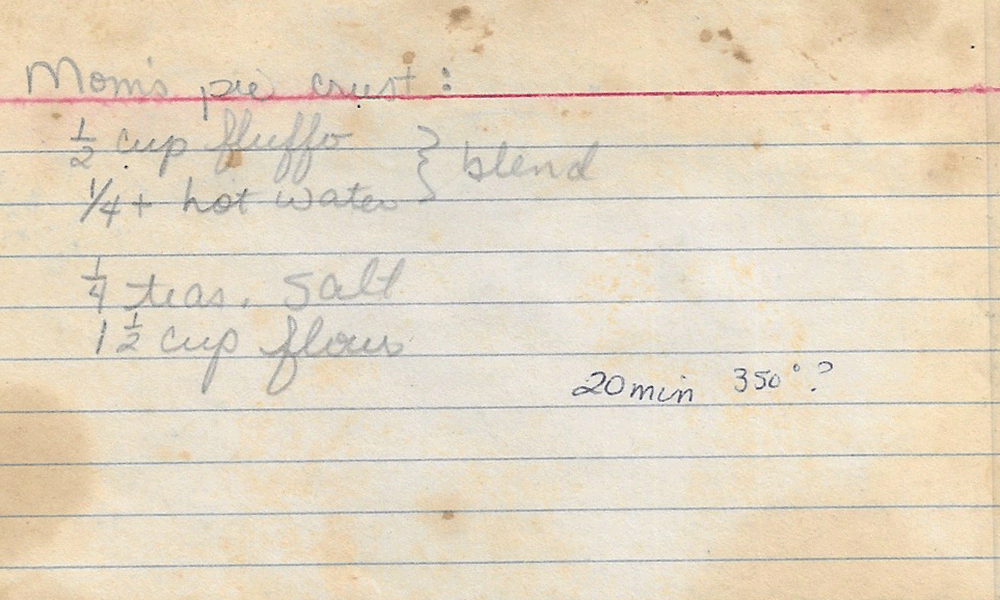 Mom's pie crust:
1/2 cup fluffo } blend
1/4+ hot water
1/4 teas. salt
1 1/2 cup flour
20 min 350°?